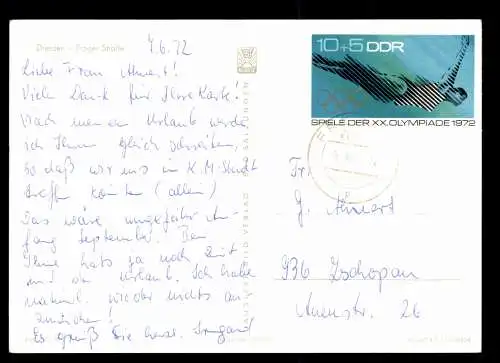 Dresden - Prager Straße
7.6.72
Liebe Frau Ahnert!
Vielen Dank für Ihre Karte!
Nach meinem Urlaube werde
ich Ihnen gleich schreiben,
so daß wir uns in K. M. Stadt
treffen könnten (allein)
Das wäre ungefähr An-
fang September. Bei
Ihnen hats ja noch Zeit
mit dem Urlaub. Ich habe
natürl. wieder nichts an-
zuziehen!
Es grüßt Sie herzl. Irmgard
10+5 DDR
SPIELE DER XX. OLYMPIADE 1972
Fr.
G. Ahnert
936 Zschopau
Auenstr. 26